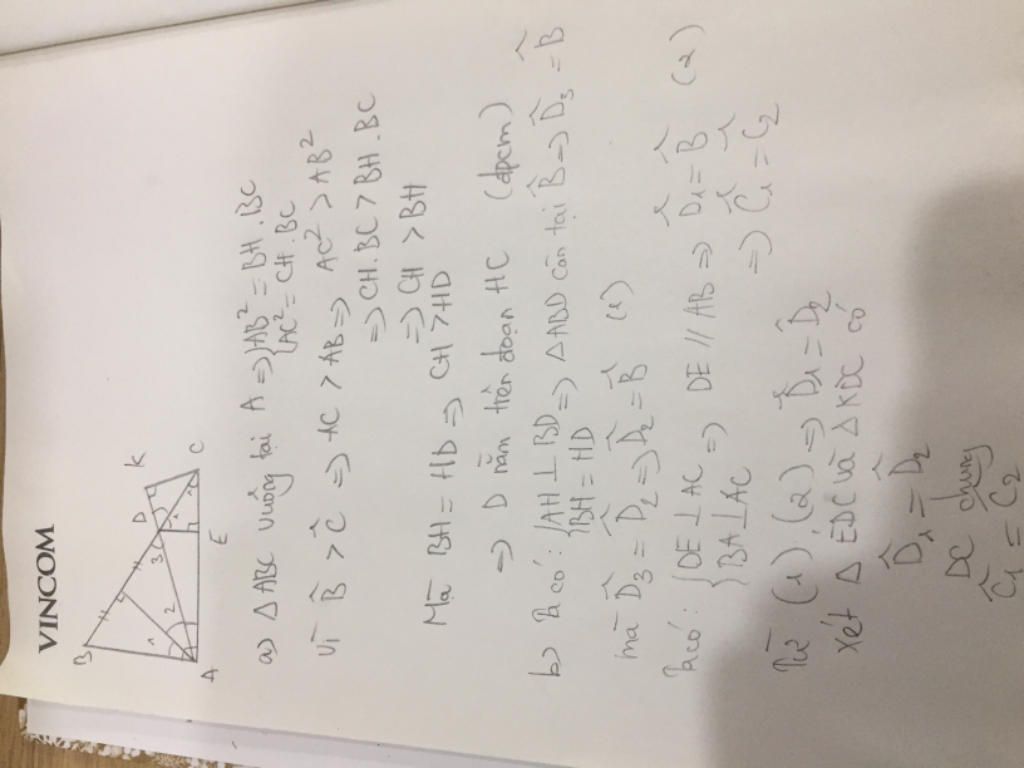 VINCOM
B
D
K
C
A
E
1
2
3
a) Δ ABC vuông tại A ⇒ { AB² = BH . BC
AC² = CH . BC
Vì B̂ > Ĉ ⇒ AC > AB ⇒ AC² > AB²
⇒ CH . BC > BH . BC
⇒ CH > BH
Mà BH = HD ⇒ CH > HD
⇒ D nằm trên đoạn HC (đpcm)
b) Ta có : { AH ⊥ BD ⇒ Δ ABD cân tại B̂ ⇒ D̂₃ = B̂
BH = HD
mà D̂₃ = D̂₂ ⇒ D̂₂ = B̂ (1)
Ta có : { DE ⊥ AC ⇒ DE // AB ⇒ D̂₁ = B̂ (2)
BA ⊥ AC ⇒ Ĉ₁ = Ĉ₂
Từ (1) (2) ⇒ D̂₁ = D̂₂
Xét Δ EDC và Δ KDC có
D̂₁ = D̂₂
DC chung
Ĉ₁ = C₂